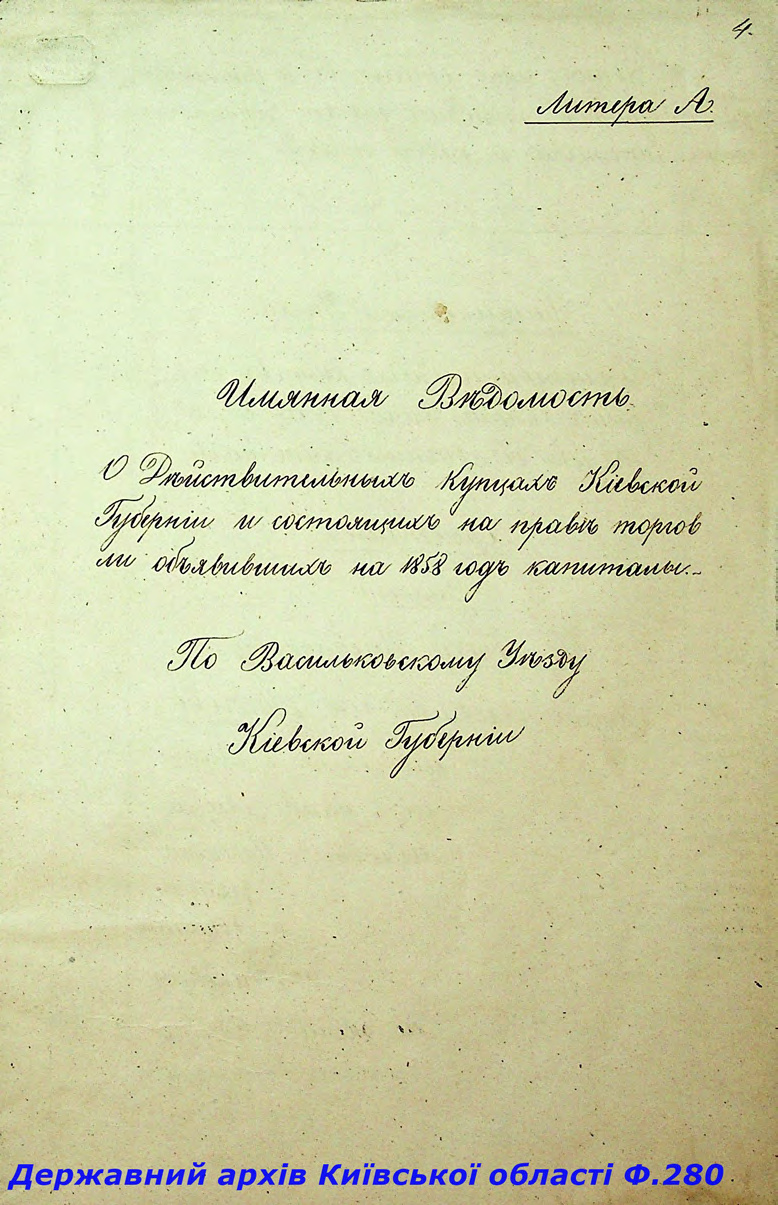 4.
Литера А.
Имянная Вѣдомость
О Дѣйствительныхъ Купцахъ Кіевской
Губерніи и состоящихъ на правѣ торгов
ли объявившихъ на 1858 годъ капиталы.-
По Васильковскому Уѣзду
Кіевской Губерніи
Державний архів Київської області Ф.280